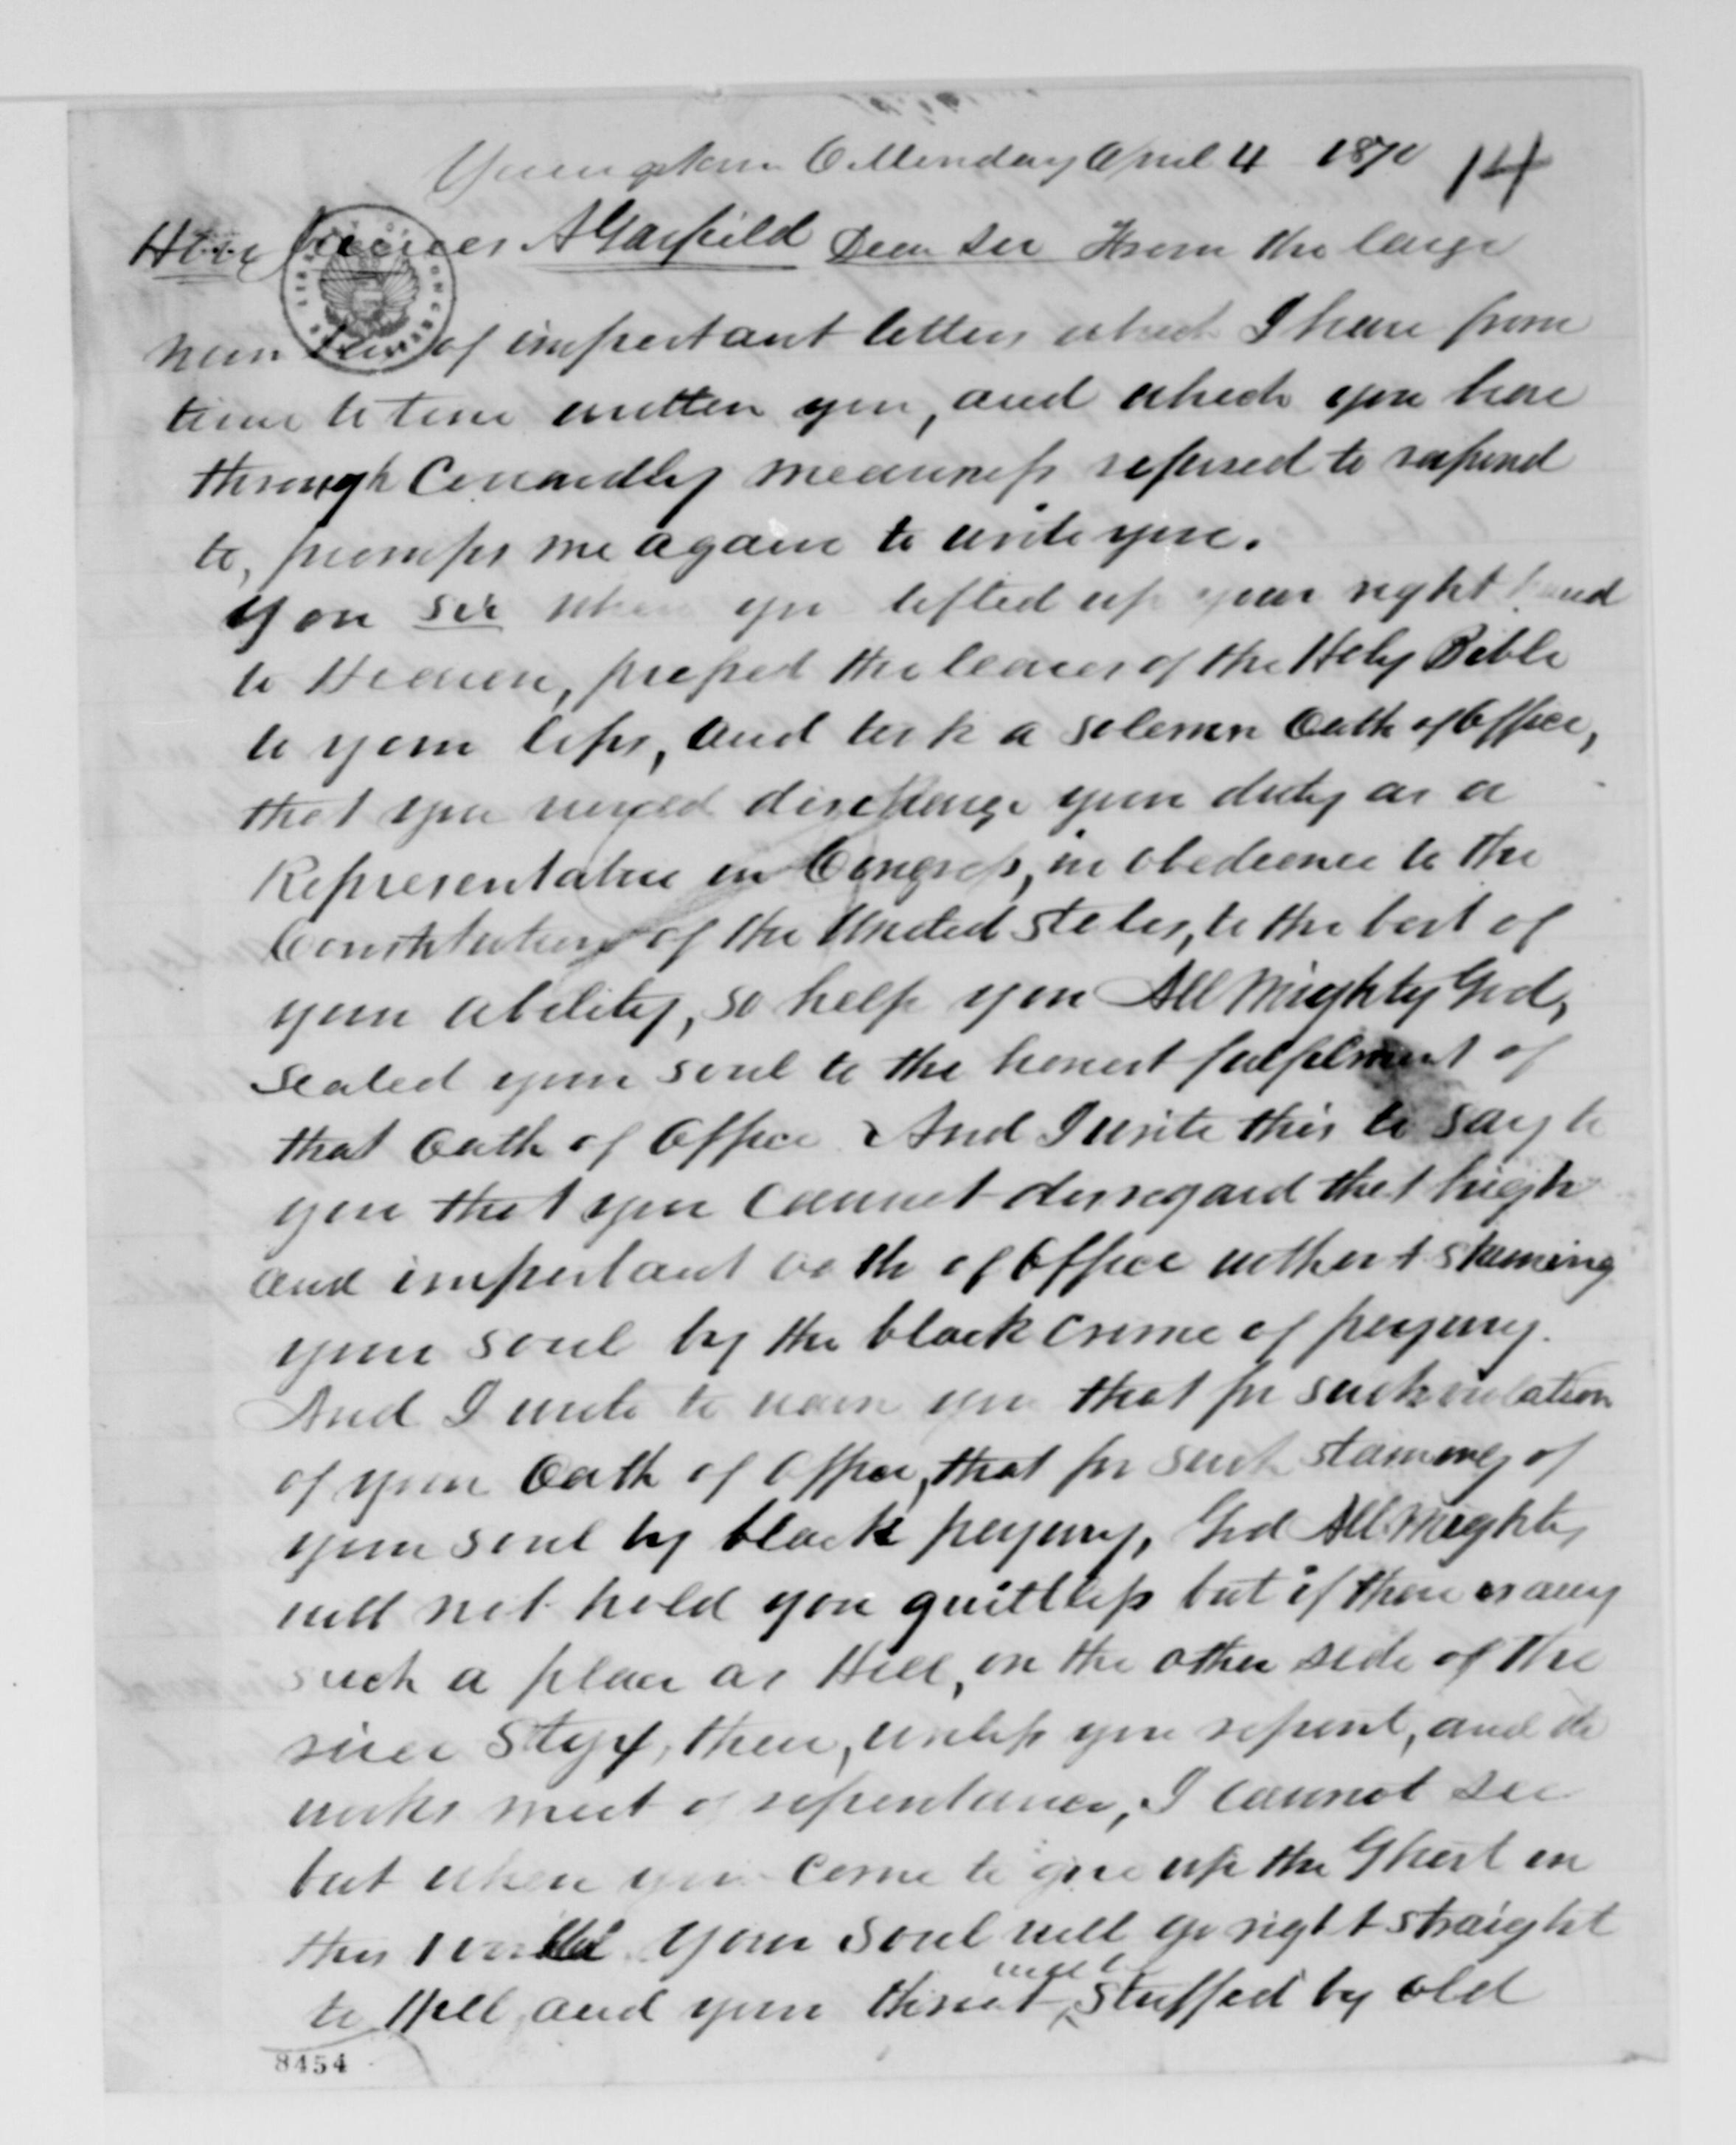 Youngstown O. Monday April 4 1870 14
Hon James A Garfield Dear Sir From the large
number of important letters which I have from
time to time written you, and which you have
through Cowardly meanness refused to respond
to, promps me again to write you.
You Sir when you lifted up your right hand
to Heaven, pressed the leaves of the Holy Bible
to your lips, and took a solemn Oath of Office,
that you would discharge your duty as a
Representative in Congress, in obedience to the
Constitution of the United States, to the best of
your ability, so help you All Mighty God,
Sealed your soul to the honest fulfilment of
that Oath of Office And I write this to say to
you that you cannot disregard that high
and important oath of Office without staining
your soul by the black crime of perjury.
And I write to warn you that for such violation
of your Oath of Office, that for such staining of
your soul by black perjury, God All Mighty
will not hold you guiltless but if there is any
such a place as Hell, on the other side of the
river Styx, then, unless you repent, and do
works meet of repentance, I cannot see
but when you come to give up the Ghost in
this world your soul will go right straight
to Hell, and your throat will be stuffed by old
8454